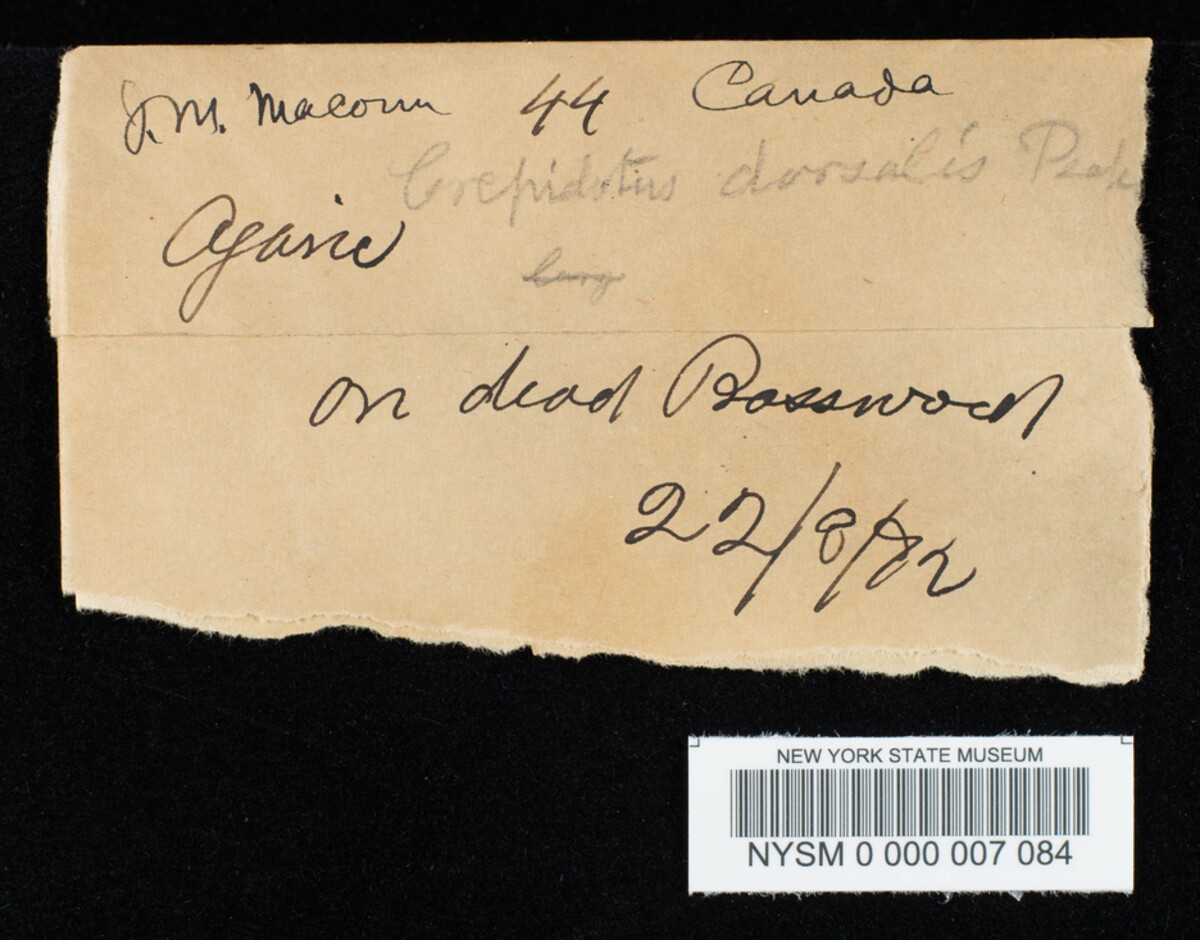 J. M. Macoun 44 Canada
Crepidotus dorsalis Peck
Agaric
on dead Basswood
22/8/82
NEW YORK STATE MUSEUM
NYSM 0 000 007 084